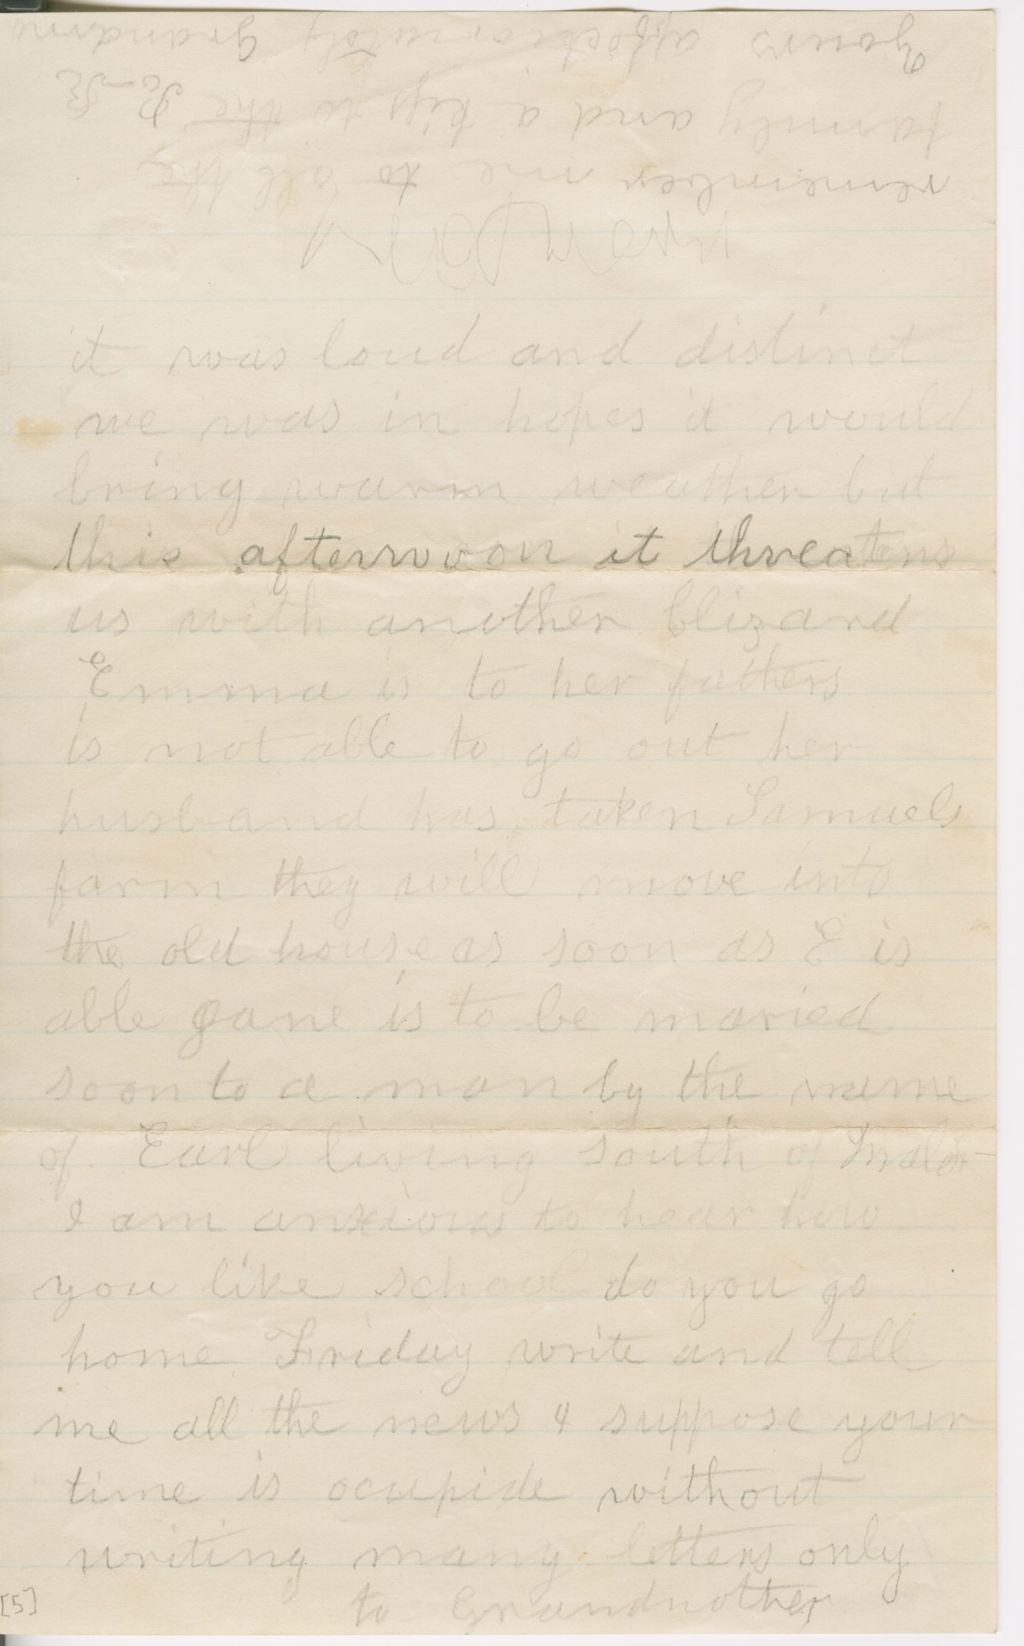 it was loud and distinct
we was in hopes it would
bring warm weather but
this afternvoon it threatens
us with another blizard
Emma is to her fathers
is not able to go out her
husband has taken Samuels
farm they will move into
the old house as soon as E is
able Jane is to be maried
soon to a man by the name
of Earl living south of
I am anxious to hear how
you like school do you go
home Friday write and tell
me all the news & suppose your
time is ocupide without
writing many letters only
to Grandmother
[5]
remember me to all the
family and a kiss to the
yours affectionately Grandma